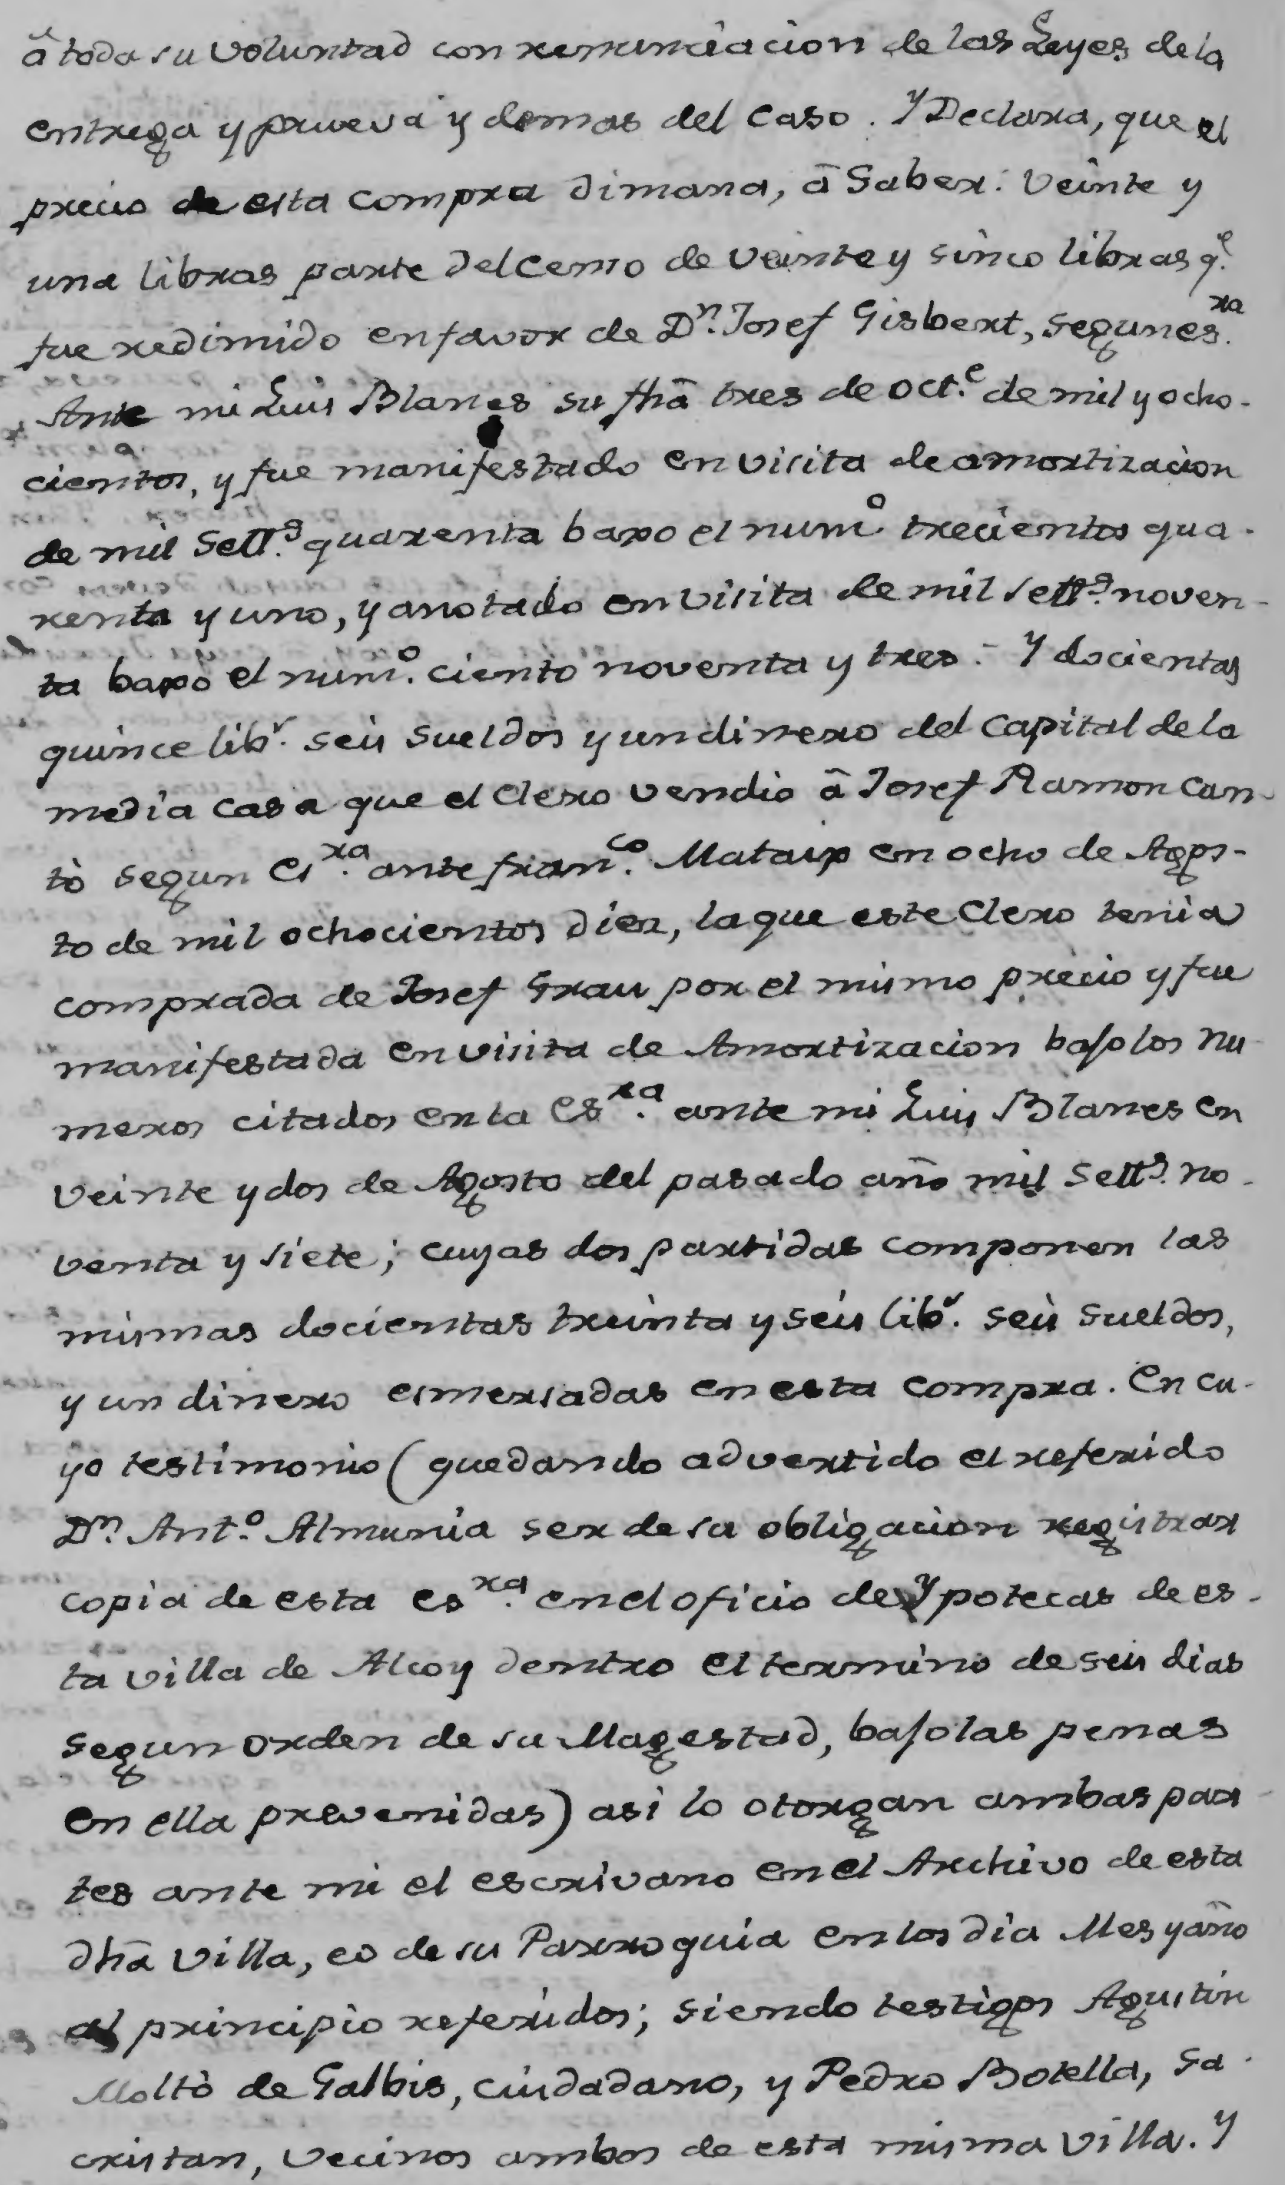 â toda su voluntad con renunciacion de las Leyes de la
entrega y prueva y demas del caso. Y Declara, que el
precio de esta compra dimana, â Saber: Veinte y
una libras parte del Censo de veinte y sinco libras q.e
fue redimido en favor de D.n Josef Gisbert, segun es.ra
Ante mi Luis Blanes su fhã tres de oct.e de mil y ocho-
cientos, y fue manifestado en visita de amortizacion
de mil Sett.s quarenta baxo el num.o trecientos qua-
renta y uno, y anotado en visita de mil sett.s noven-
ta baxo el num.o ciento noventa y tres.- Y docientas
quince lib.s seis sueldos y un dinero del capital de la
media casa que el Clero vendio â Josef Ramon Can-
tò segun es.ra ante fran.co Mataix en ocho de Agos-
to de mil ochocientos diez, la que este Clero tenia
comprada de Josef Grau por el mismo precio y fue
manifestada en visita de Amortizacion bajo los nu-
meros citados en la es.ra ante mi Luis Blanes en
veinte y dos de Agosto del pasado año mil Sett.s no-
venta y siete; cuyas dos partidas componen las
mismas docientas treinta y seis lib.s seis sueldos,
y un dinero esmersadas en esta compra. En cu-
yo testimonio (quedando advertido el referido
D.n Ant.o Almunia ser de su obligacion registrar
copia de esta es.ra en el oficio de Ypotecas de es-
ta villa de Alcoy dentro el termino de seis dias
segun orden de su Magestad, bajo las penas
en ella prevenidas) asi lo otorgan ambas par-
tes ante mi el escrivano en el Archivo de esta
dhã Villa, eo de su Parroquia en los dia Mes y año
al principio referidos; siendo testigos Agustin
Moltò de Galbis, ciudadano, y Pedro Botella, Sa-
cristan, vecinos ambos de esta misma Villa. Y